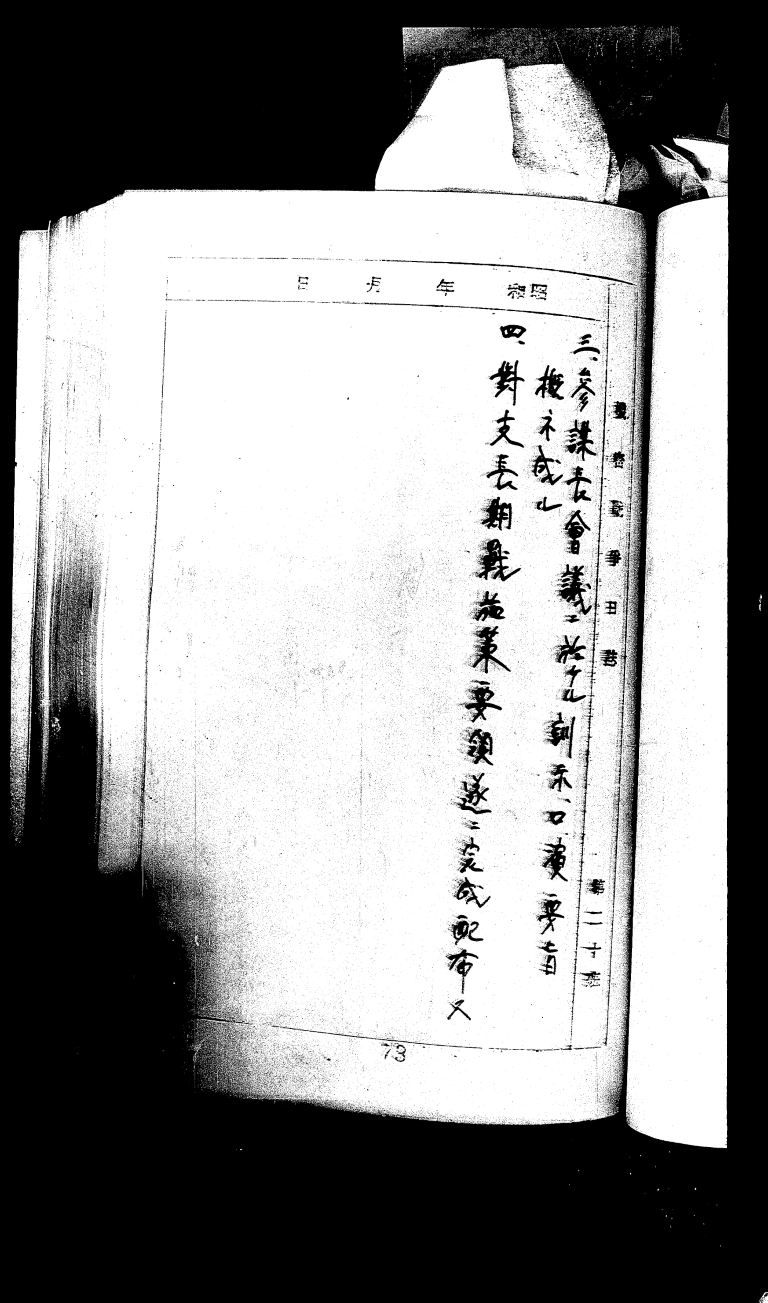 機密戰爭日誌　第二十班
昭和　年　月　日
三、參謀長會議ニ於ケル訓示、口演要旨
概ネ成ル
四、對支長期戰施策要領遂ニ完成配布ス
73